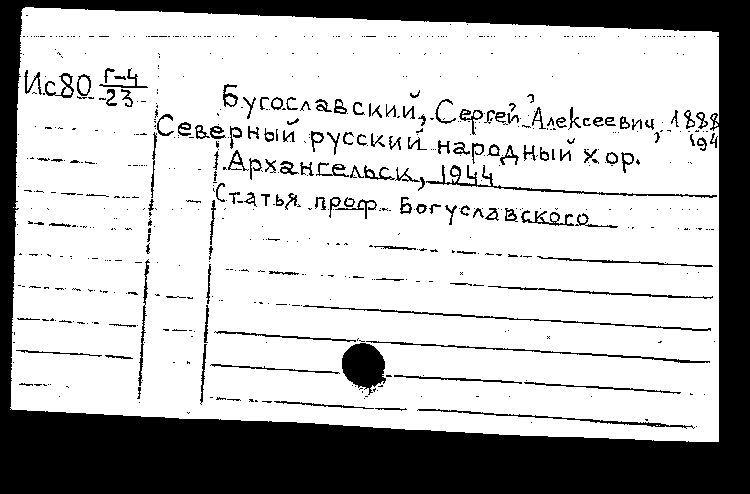 Ис80 Г-4/23
Бугославский, Сергей Алексеевич, 1888
194
Северный русский народный хор.
Архангельск, 1944
Статья проф. Богуславского